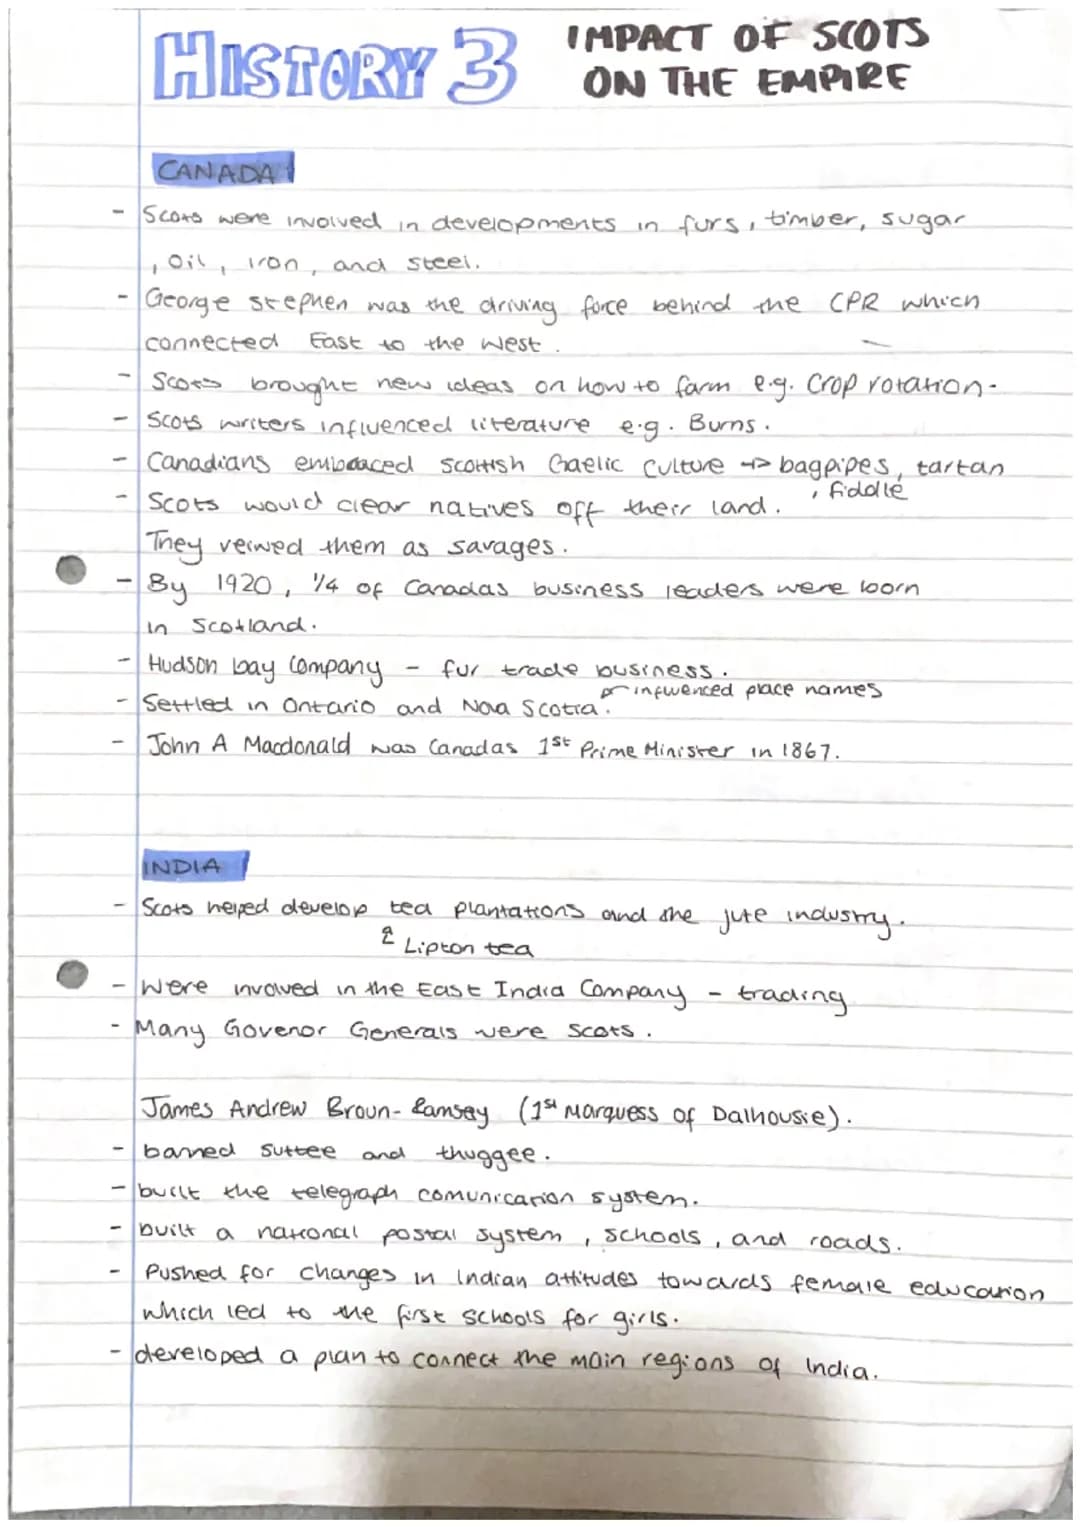 HISTORY 3 IMPACT OF SCOTS
ON THE EMPIRE
CANADA
- Scots were involved in developments in furs, timber, sugar
, oil, iron, and steel.
- George Stephen was the driving force behind the CPR which
connected East to the west.
- Scots brought new ideas on how to farm e.g. Crop rotation.
- Scots writers influenced literature e.g. Burns.
- Canadians embraced scottish Gaelic culture → bagpipes, tartan
, fiddle
- Scots would clear natives off their land.
They veiwed them as savages.
- By 1920, 1/4 of Canadas business leaders were born
in Scotland.
- Hudson bay Company - fur trade business.
influenced place names
- Settled in Ontario and Nova Scotia.
- John A Macdonald was Canadas 1st Prime Minister in 1867.
INDIA
- Scots helped develop tea plantations and the jute industry.
Lipton tea
- Were involved in the East India Company - trading
- Many Govenor Generals were Scots.
James Andrew Broun-Ramsay (1st Marquess of Dalhousie).
- banned suttee and thuggee.
- built the telegraph comunication system.
- built a national postal system, schools, and roads.
- Pushed for changes in Indian attitudes towards female education
which led to the first schools for girls.
- developed a plan to connect the main regions of India.